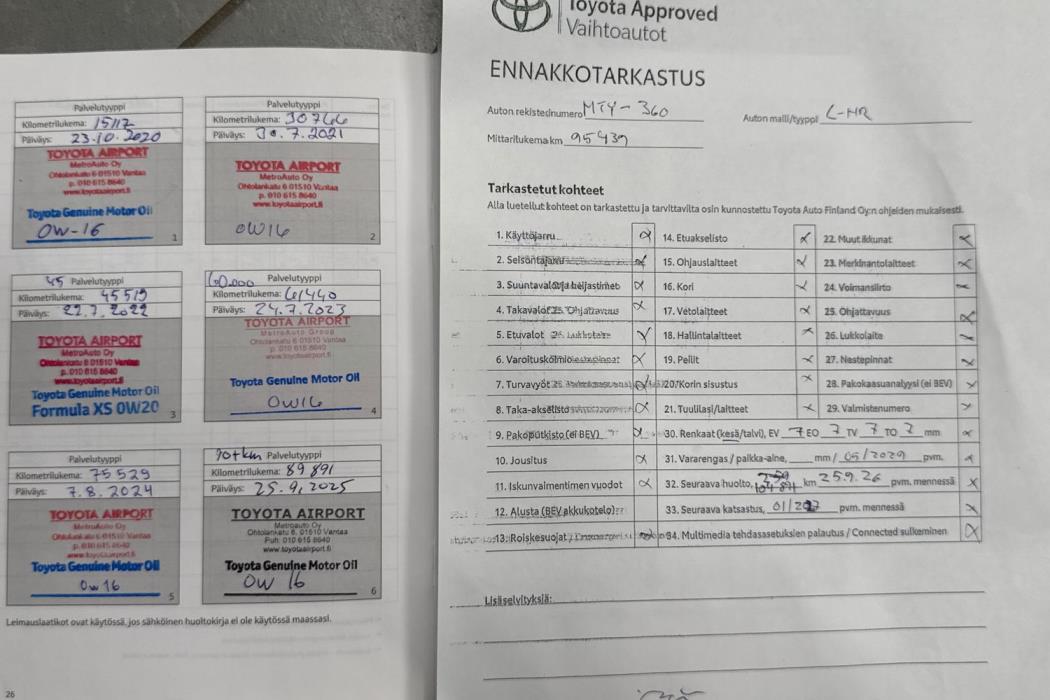 Palvelutyyppi
Kilometrilukema: 15117
Päiväys: 23.10.2020
TOYOTA AIRPORT
MetroAuto Oy
Ohtolankatu 6 01510 Vantaa
p. 010 615 8640
www.toyotaairport.fi
Toyota Genuine Motor Oil
0W-16
1
Palvelutyyppi
Kilometrilukema: 30766
Päiväys: 30.7.2021
TOYOTA AIRPORT
MetroAuto Oy
Ohtolankatu 6 01510 Vantaa
p. 010 615 8640
www.toyotaairport.fi
0W16
2
45 Palvelutyyppi
Kilometrilukema: 45519
Päiväys: 22.7.2022
TOYOTA AIRPORT
MetroAuto Oy
Ohtolankatu 6 01510 Vantaa
p. 010 615 8640
www.toyotaairport.fi
Toyota Genuine Motor Oil
Formula XS 0W20
3
60.000 Palvelutyyppi
Kilometrilukema: 61440
Päiväys: 24.7.2023
TOYOTA AIRPORT
MetroAuto Group
Ohtolankatu 6 01510 Vantaa
p. 010 615 8640
www.toyotaairport.fi
Toyota Genuine Motor Oil
0W16
4
Palvelutyyppi
Kilometrilukema: 75529
Päiväys: 7.8.2024
TOYOTA AIRPORT
MetroAuto Oy
Ohtolankatu 6 01510 Vantaa
p. 010 615 8640
www.toyotaairport.fi
Toyota Genuine Motor Oil
0W16
5
90tkm Palvelutyyppi
Kilometrilukema: 89891
Päiväys: 25.9.2025
TOYOTA AIRPORT
Metroauto Oy
Ohtolankatu 6, 01510 Vantaa
Puh: 010 615 8640
www.toyotaairport.fi
Toyota Genuine Motor Oil
0W 16
6
Leimauslaatikot ovat käytössä, jos sähköinen huoltokirja ei ole käytössä maassasi.
26
Toyota Approved
Vaihtoautot
ENNAKKOTARKASTUS
Auton rekisterinumero MTY-360
Auton malli/tyyppi C-HR
Mittarilukema km 95439
Tarkastetut kohteet
Alla luetellut kohteet on tarkastettu ja tarvittavilta osin kunnostettu Toyota Auto Finland Oy:n ohjeiden mukaisesti.
1. Käyttöjarru
2. Seisontajarru
3. Suuntavalot ja heijastimet
4. Takavalot
5. Etuvalot
6. Varoituskolmio
7. Turvavyöt
8. Taka-akselisto
9. Pakoputkisto (ei BEV)
10. Jousitus
11. Iskunvaimentimien vuodot
12. Alusta (BEV akkukotelo)
13. Roiskesuojat
14. Etuakselisto
15. Ohjauslaitteet
16. Kori
17. Vetolaitteet
18. Hallintalaitteet
19. Peilit
20. Korin sisustus
21. Tuulilasi/laitteet
22. Muut ikkunat
23. Merkinantolaitteet
24. Voimansiirto
25. Ohjattavuus
26. Lukkolaite
27. Nestepinnat
28. Pakokaasuanalyysi (ei BEV)
29. Valmistenumero
30. Renkaat (kesä/talvi), EV 7 EO 7 TV 7 TO 7 mm
31. Vararengas / paikka-aine, mm/ 05/2029 pvm.
32. Seuraava huolto, 104891 km 25.9.26 pvm. mennessä
33. Seuraava katsastus, 01/2027 pvm. mennessä
34. Multimedia tehdasasetuksien palautus / Connected sulkeminen
Lisäselvityksiä: